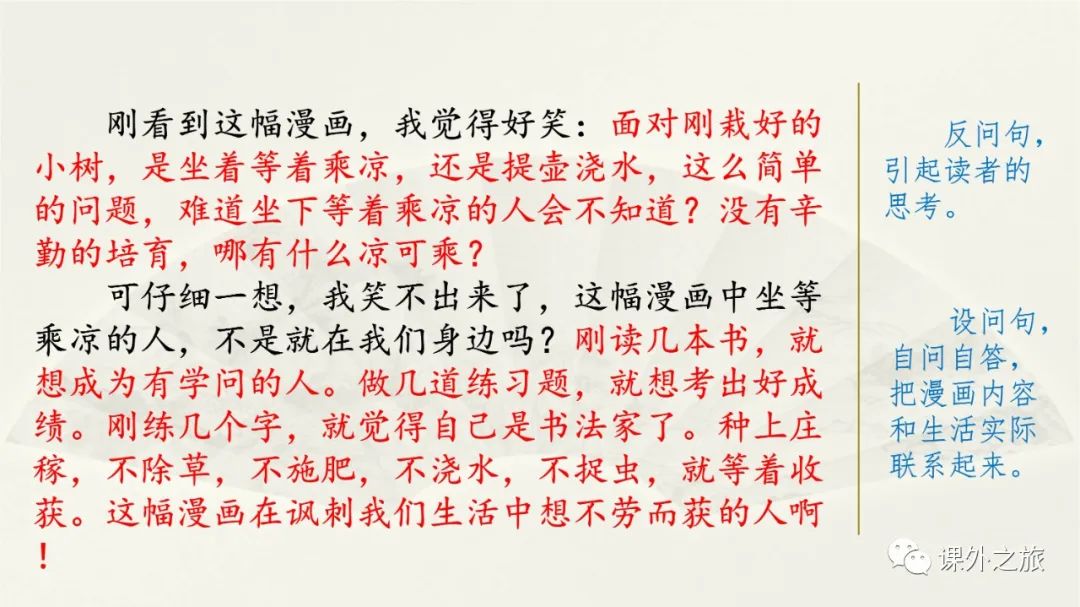 刚看到这幅漫画，我觉得好笑：面对刚栽好的
小树，是坐着等着乘凉，还是提壶浇水，这么简单
的问题，难道坐下等着乘凉的人会不知道？没有辛
勤的培育，哪有什么凉可乘？
可仔细一想，我笑不出来了，这幅漫画中坐等
乘凉的人，不是就在我们身边吗？刚读几本书，就
想成为有学问的人。做几道练习题，就想考出好成
绩。刚练几个字，就觉得自己是书法家了。种上庄
稼，不除草，不施肥，不浇水，不捉虫，就等着收
获。这幅漫画在讽刺我们生活中想不劳而获的人啊
！
反问句，
引起读者的
思考。
设问句，
自问自答，
把漫画内容
和生活实际
联系起来。
课外之旅